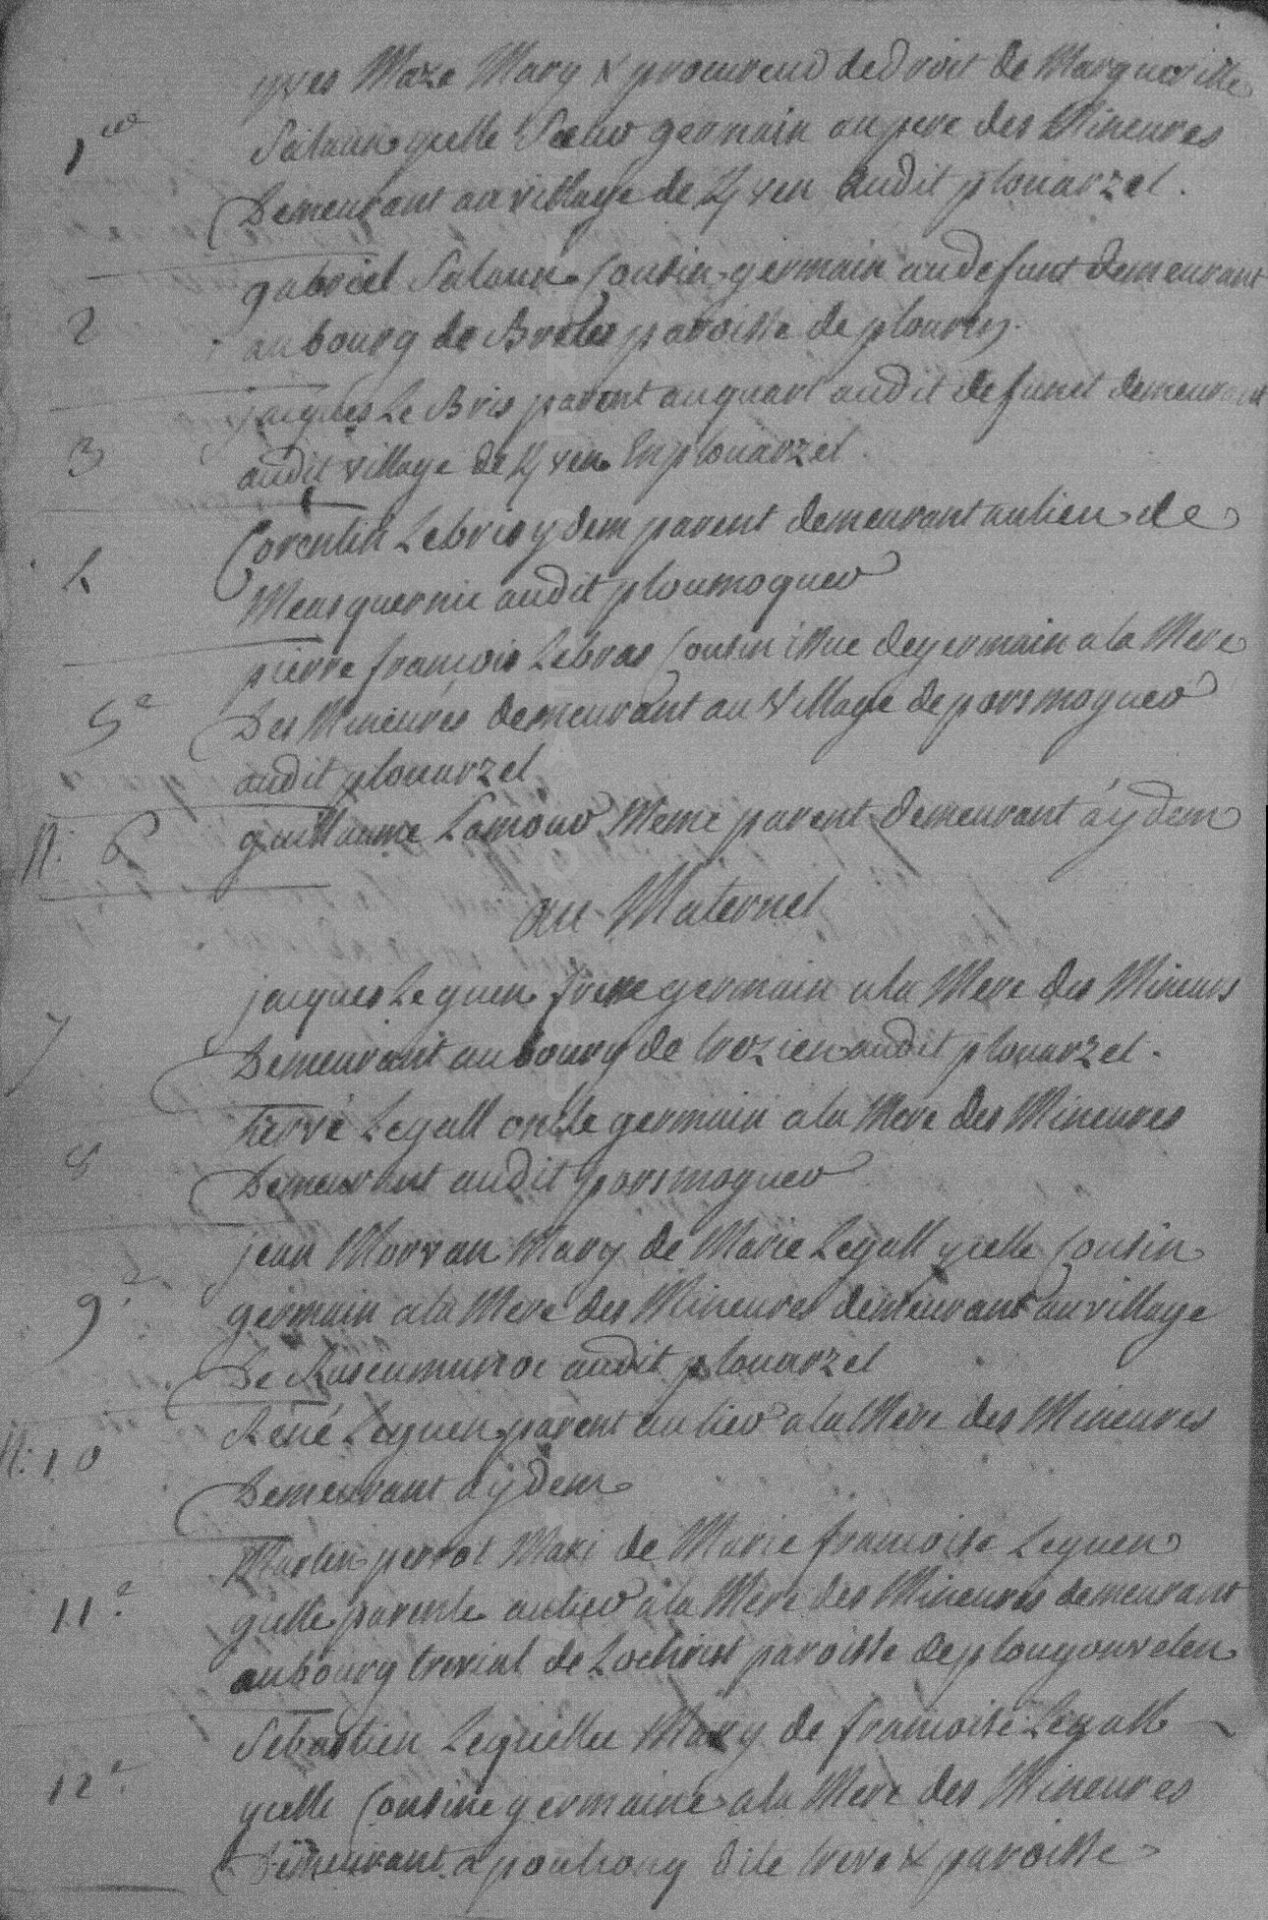 yves Maze Mary & procureur de droit de Margueritte
1er Salaun ycelle Sœur germain au pere des Mineures
Demeurant au village de Kyven audit plouarzel.
gabriel Salaun Cousin germain au defunt demeurant
2 au bourg de Breles paroisse de plourin.
jacques Le Bris parent au quart audit defunct demeurant
3 audit village de Kyven En plouarzel.
Corentin Lebris ydem parent demeurant au lieu de
4 audit ploumoguer
pierre francois Lebras Cousin issue de germain a la Mere
5e Des Mineures demeurant au Village de porsmoguer
audit plouarzel
N: 6 guillaume Lamour Meme parent demeurant á ydem
au Maternel
jacques Leguen frere germain a la Mere des Mineurs
7 Demeurant au bourg de trezien audit plouarzel.
hervé Legall oncle germain a la Mere des Mineures
8 Demeurant audit porsmoguer
jean Morvan Mary de Marie Legall ycelle Cousin
9e germain a la Mere des Mineures demeurant au village
De audit plouarzel
N: 10 René Leguen parent au tier a la Mere des Mineures
Demeurant a ydem
Martin perrot Mari de Marie francoise Leguen
11e ycelle parente au tier a la Mere des Mineures demeurant
au bourg trevial de Lochrist paroisse de plougonvelen
Sebastien Mary de francoise Legall
12e ycelle Cousine germaine a la Mere des Mineures
Demeurant a dite treve & paroisse